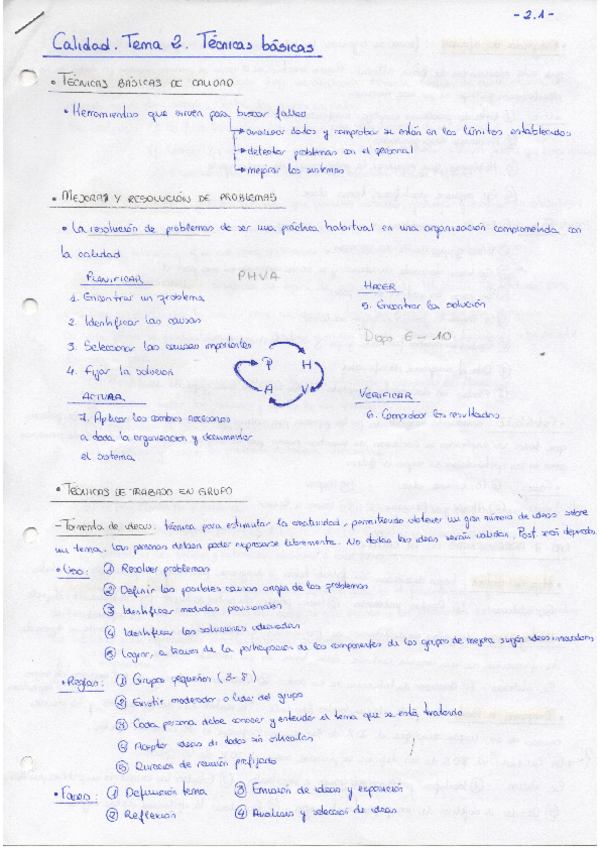 - 2.1 -
Calidad. Tema 2. Técnicas básicas
• TÉCNICAS BÁSICAS DE CALIDAD
• Herramientas que sirven para buscar fallos
→ analizar datos y comprobar se están en los límites establecidos
→ detectar problemas con el personal
→ mejorar los sistemas
• MEJORAS Y RESOLUCIÓN DE PROBLEMAS
• La resolución de problemas de ser una práctica habitual en una organización comprometida con
la calidad
PLANIFICAR PHVA HACER
1. Encontrar un problema 5. Encontrar la solución
2. Identificar las causas
3. Seleccionar las causas importantes Diaps 6 - 10
4. Fijar la solución P H
A V
ACTUAR VERIFICAR
7. Aplicar los cambios necesarios 6. Comprobar los resultados
a toda la organización y documentar
el sistema
• TÉCNICAS DE TRABAJO EN GRUPO
- Tormenta de ideas: técnica para estimular la creatividad, permitiendo obtener un gran número de ideas sobre
un tema. Las personas deben poder expresarse libremente. No todas las ideas serán válidas. Post serán depuradas.
• Uso: ① Resolver problemas
② Definir las posibles causas origen de los problemas
③ Identificar medidas provisionales
④ Identificar las soluciones adecuadas
⑤ Lograr, a través de la participación de los componentes de los grupos de mejora surjan ideas innovadoras
• Reglas: ① Grupos pequeños (3-8)
② Existir moderador o líder del grupo
③ Cada persona debe conocer y entender el tema que se está tratando
④ Aceptar ideas de todos sin criticarlas
⑤ de reunión prefijado
• Fases: ① Definición tema ③ Emisión de ideas y exposición
② Reflexión ④ Análisis y selección de ideas